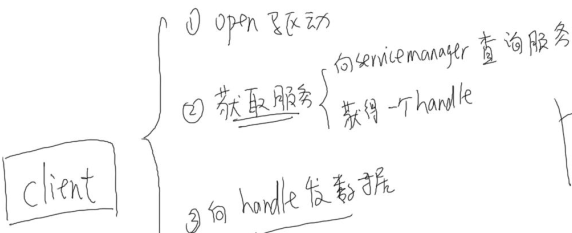 ① open 驱动
② 获取服务
向servicemanager 查询服务
获得一个handle
client
③向 handle 发数据